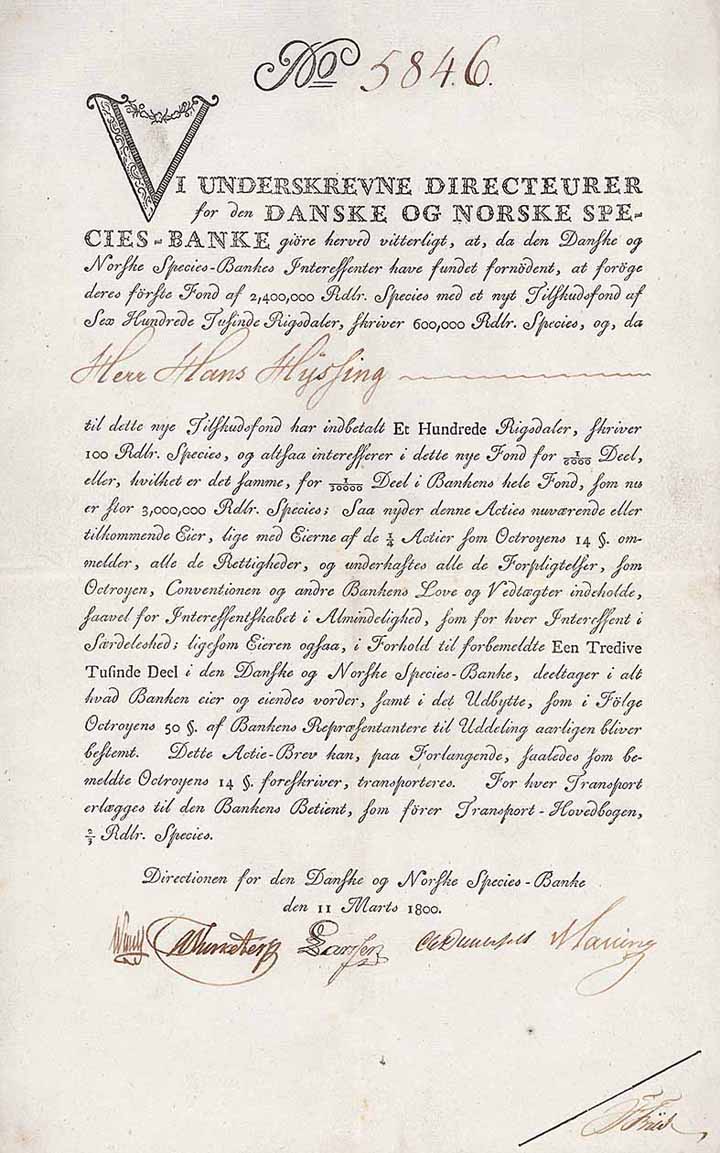 No 5846.
VI UNDERSKREVNE DIRECTEURER
for den DANSKE OG NORSKE SPE-
CIES-BANKE giöre herved vitterligt, at, da den Danske og
Norske Species-Bankes Interessenter have fundet fornödent, at foröge
deres förste Fond af 2,400,000 Rdlr. Species med et nyt Tilskudsfond af
Sex Hundrede Tusinde Rigsdaler, skriver 600,000 Rdlr. Species, og, da
Herr Hans Hÿssing
til dette nye Tilskudsfond har indbetalt Et Hundrede Rigsdaler, skriver
100 Rdlr. Species, og altsaa interesserer i dette nye Fond for 1/6000 Deel,
eller, hvilket er det samme, for 1/30000 Deel i Bankens hele Fond, som nu
er stor 3,000,000 Rdlr. Species; Saa nyder denne Acties nuværende eller
tilkommende Eier, lige med Eierne af de 1/4 Actier som Octroyens 14 §. om-
melder, alle de Rettigheder, og underkastes alle de Forpligtelser, som
Octroyen, Conventionen og andre Bankens Love og Vedtægter indeholde,
saavel for Interessentskabet i Almindelighed, som for hver Interessent i
Særdeleshed; ligesom Eieren ogsaa, i Forhold til forbemeldte Een Tredive
Tusinde Deel i den Danske og Norske Species-Banke, deeltager i alt
hvad Banken eier og eiendes vorder, samt i det Udbytte, som i Fölge
Octroyens 50 §. af Bankens Repræsentantere til Uddeling aarligen bliver
bestemt. Dette Actie-Brev kan, paa Forlangende, saaledes som be-
meldte Octroyens 14 §. foreskriver, transporteres. For hver Transport
erlægges til den Bankens Betient, som förer Transport-Hovedbogen,
2/3 Rdlr. Species.
Directionen for den Danske og Norske Species-Banke
den 11 Marts 1800.
Larsen